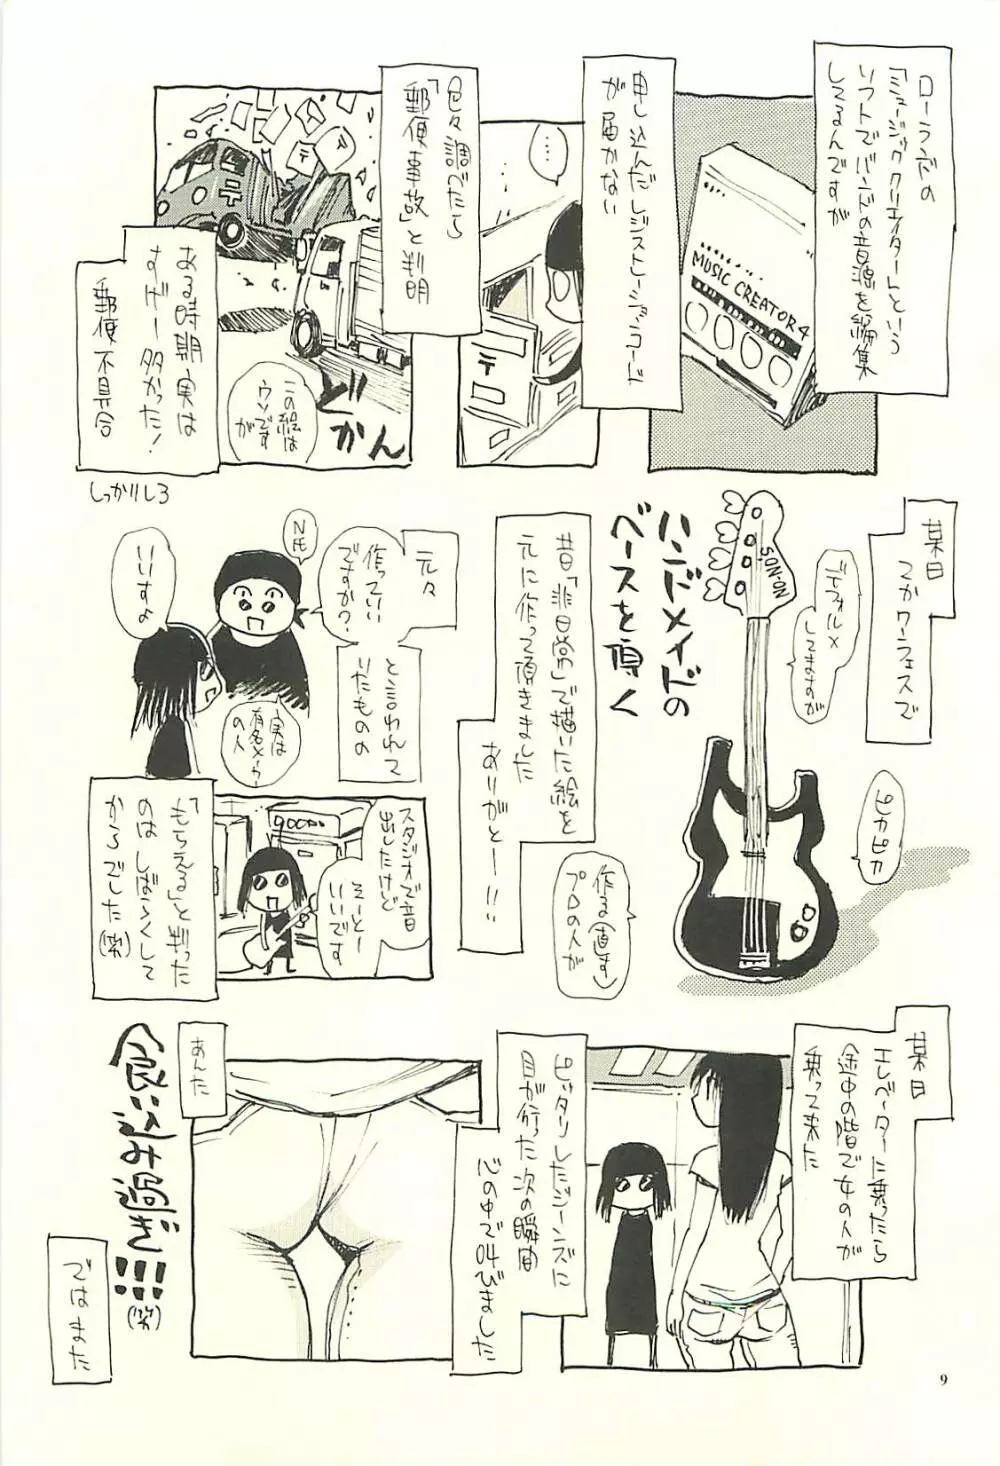 ローランドの
「ミュージッククリエイター」という
ソフトでバンドの音源を編集
してるんですが
MUSIC CREATOR 4
申し込んだレジストレーションコード
が届かない
……
〒
色々調べたら
「郵便事故」と判明
〒
どかん
この絵は
ウソです
が
ある時期実は
すげー多かった!
郵便不具合
しっかりしろ
某日
デフォルメ
してますのが
SON-ON
ハンドメイドの
ベースを頂く
ピカピカ
昔「非日常」で描いた絵を
元に作って頂きました
ありがとー!!
作る(直す)
プロの人が
元々
N氏
作っていい
ですか?
いいすよ
と言われて
いたものの
実は
の人
スタジオで音
出したけど
いいです
「もらえる」と判った
のはしばらくして
からでした(笑)
某日
エレベーターに乗ったら
途中の階で女の人が
乗って来た
ピッタリしたジーンズに
目が行った次の瞬間
心の中で叫びました
あんた
食い込み過ぎ!!!
(笑)
ではまた
9